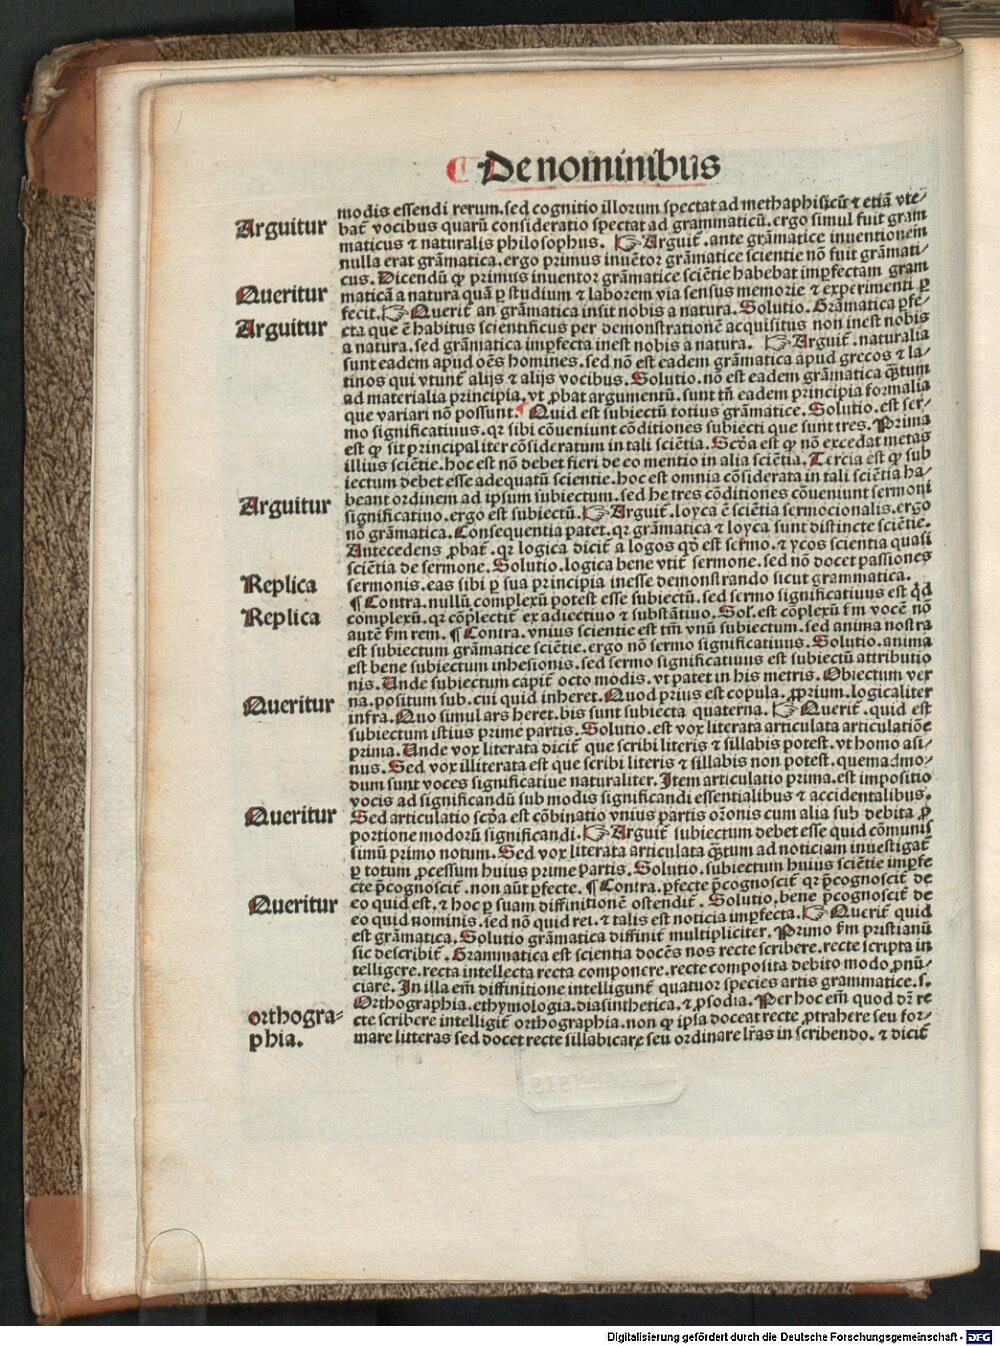 De nominibus
modis essendi rerum. sed cognitio illorum spectat ad methaphisicū ⁊ etiā vte⸗
Arguitur
bat̄ vocibus quarū consideratio spectat ad grammaticū. ergo simul fuit gram
maticus ⁊ naturalis philosophus. ☞ Arguit̄. ante grāmatice inuentionem
nulla erat grāmatica. ergo primus inuētor grāmatice scientie nō fuit grāmati⸗
cus. Dicendū ꝙ primus inuentor grāmatice sciētie habebat imꝑfectam gram
Queritur
maticā a natura quā ꝑ studium ⁊ laborem via sensus memorie ⁊ experimenti ꝑ
fecit. ☞ Querit̄ an grāmatica insit nobis a natura. Solutio. Grāmatica ꝑfe⸗
Arguitur
cta que ē habitus scientificus per demonstrationē acquisitus non inest nobis
a natura. sed grāmatica imꝑfecta inest nobis a natura. ☞ Arguit̄. naturalia
sunt eadem apud oēs homines. sed nō est eadem grāmatica apud grecos ⁊ la⸗
tinos qui vtunt̄ alijs ⁊ alijs vocibus. Solutio. nō est eadem grāmatica qͣꝫtum
ad materialia principia. vt ꝓbat argumentū. sunt tn̄ eadem principia formalia
que variari nō possunt. ¶ Quid est subiectū totius grāmatice. Solutio. est ser⸗
mo significatiuus. qꝛ sibi cōueniunt cōditiones subiecti que sunt tres. Prima
est ꝙ sit principaliter cōsideratum in tali sciētia. Scd̄a est ꝙ nō excedat metas
illius sciētie. hoc est nō debet fieri de eo mentio in alia sciētia. Tercia est ꝙ sub
iectum debet esse adequatū scientie. hoc est omnia cōsiderata in tali sciētia ha⸗
beant ordinem ad ipsum subiectum. sed he tres cōditiones cōueniunt sermoni
Arguitur
significatiuo. ergo est subiectū. ☞ Arguit̄. loyca ē sciētia sermocionalis. ergo
nō grāmatica. Consequentia patet. qꝛ grāmatica ⁊ loyca sunt distincte sciētie.
Antecedens ꝓbat̄. qꝛ logica dicit̄ a logos qd̄ est sermo. ⁊ ycos scientia quasi
sciētia de sermone. Solutio. logica bene vtit̄ sermone. sed nō docet passiones
Replica
sermonis. eas sibi ꝑ sua principia inesse demonstrando sicut grammatica.
¶ Contra. nullū complexū potest esse subiectū. sed sermo significatiuus est qd̄
Replica
complexū. qꝛ cōplectit̄ ex adiectiuo ⁊ substātiuo. Sol. est cōplexū fm̄ vocē nō
autē fm̄ rem. ¶ Contra. vnius scientie est tm̄ vnū subiectum. sed anima nostra
est subiectum grāmatice sciētie. ergo nō sermo significatiuus. Solutio. anima
est bene subiectum inhesionis. sed sermo significatiuus est subiectū attributio
nis. Unde subiectum capit̄ octo modis. vt patet in his metris. Obiectum ver
Queritur
na. positum sub. cui quid inheret. Quod prius est copula. ꝓprium. logicaliter
infra. Quo simul ars heret. bis sunt subiecta quaterna. ☞ Querit̄. quid est
subiectum istius prime partis. Solutio. est vox literata articulata articulatiōe
prima. Unde vox literata dicit̄ que scribi literis ⁊ sillabis potest. vt homo asi⸗
nus. Sed vox illiterata est que scribi literis ⁊ sillabis non potest. quemadmo⸗
dum sunt voces significatiue naturaliter. Item articulatio prima. est impositio
vocis ad significandū sub modis significandi essentialibus ⁊ accidentalibus.
Queritur
Sed articulatio scd̄a est cōbinatio vnius partis or̄onis cum alia sub debita ꝓ
portione modorū significandi. ☞ Arguit̄ subiectum debet esse quid cōmunis
simū primo notum. Sed vox literata articulata qͣꝫtum ad noticiam inuestigat̄
ꝑ totum ꝓcessum huius prime partis. Solutio. subiectum huius sciētie imꝑfe
cte p̄cognoscit̄. non aūt ꝑfecte. ¶ Contra. ꝑfecte p̄cognoscit̄ qꝛ p̄cognoscit̄ de
Queritur
eo quid est. ⁊ hoc ꝑ suam diffinitionē ostendit̄. Solutio. bene p̄cognoscit̄ de
eo quid nominis. sed nō quid rei. ⁊ talis est noticia imꝑfecta. ☞ Querit̄ quid
est grāmatica. Solutio grāmatica diffinit̄ multipliciter. Primo fm̄ pristianū
sic describit̄. Grammatica est scientia docēs nos recte scribere. recte scripta in
telligere. recta intellecta recta componere. recte composita debito modo ꝓnū⸗
ciare. In illa em̄ diffinitione intelligunt̄ quatuor species artis grammatice. s.
Orthographia. ethymologia. diasinthetica. ⁊ ꝓsodia. Per hoc em̄ quod dr̄ re
orthogra⸗
cte scribere intelligit̄ orthographia. non ꝙ ipsa doceat recte ꝓtrahere seu for⸗
phia.
mare litteras sed docet recte sillabicare seu ordinare lr̄as in scribendo. ⁊ dicit̄
Digitalisierung gefördert durch die Deutsche Forschungsgemeinschaft - DFG